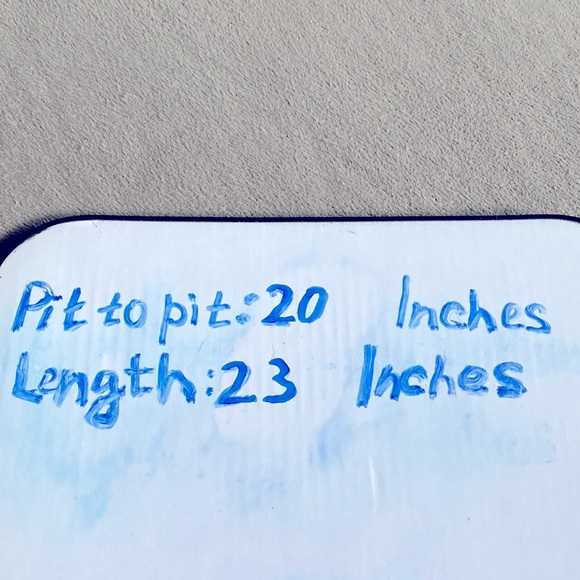 Pit to pit:20 Inches
Length:23 Inches